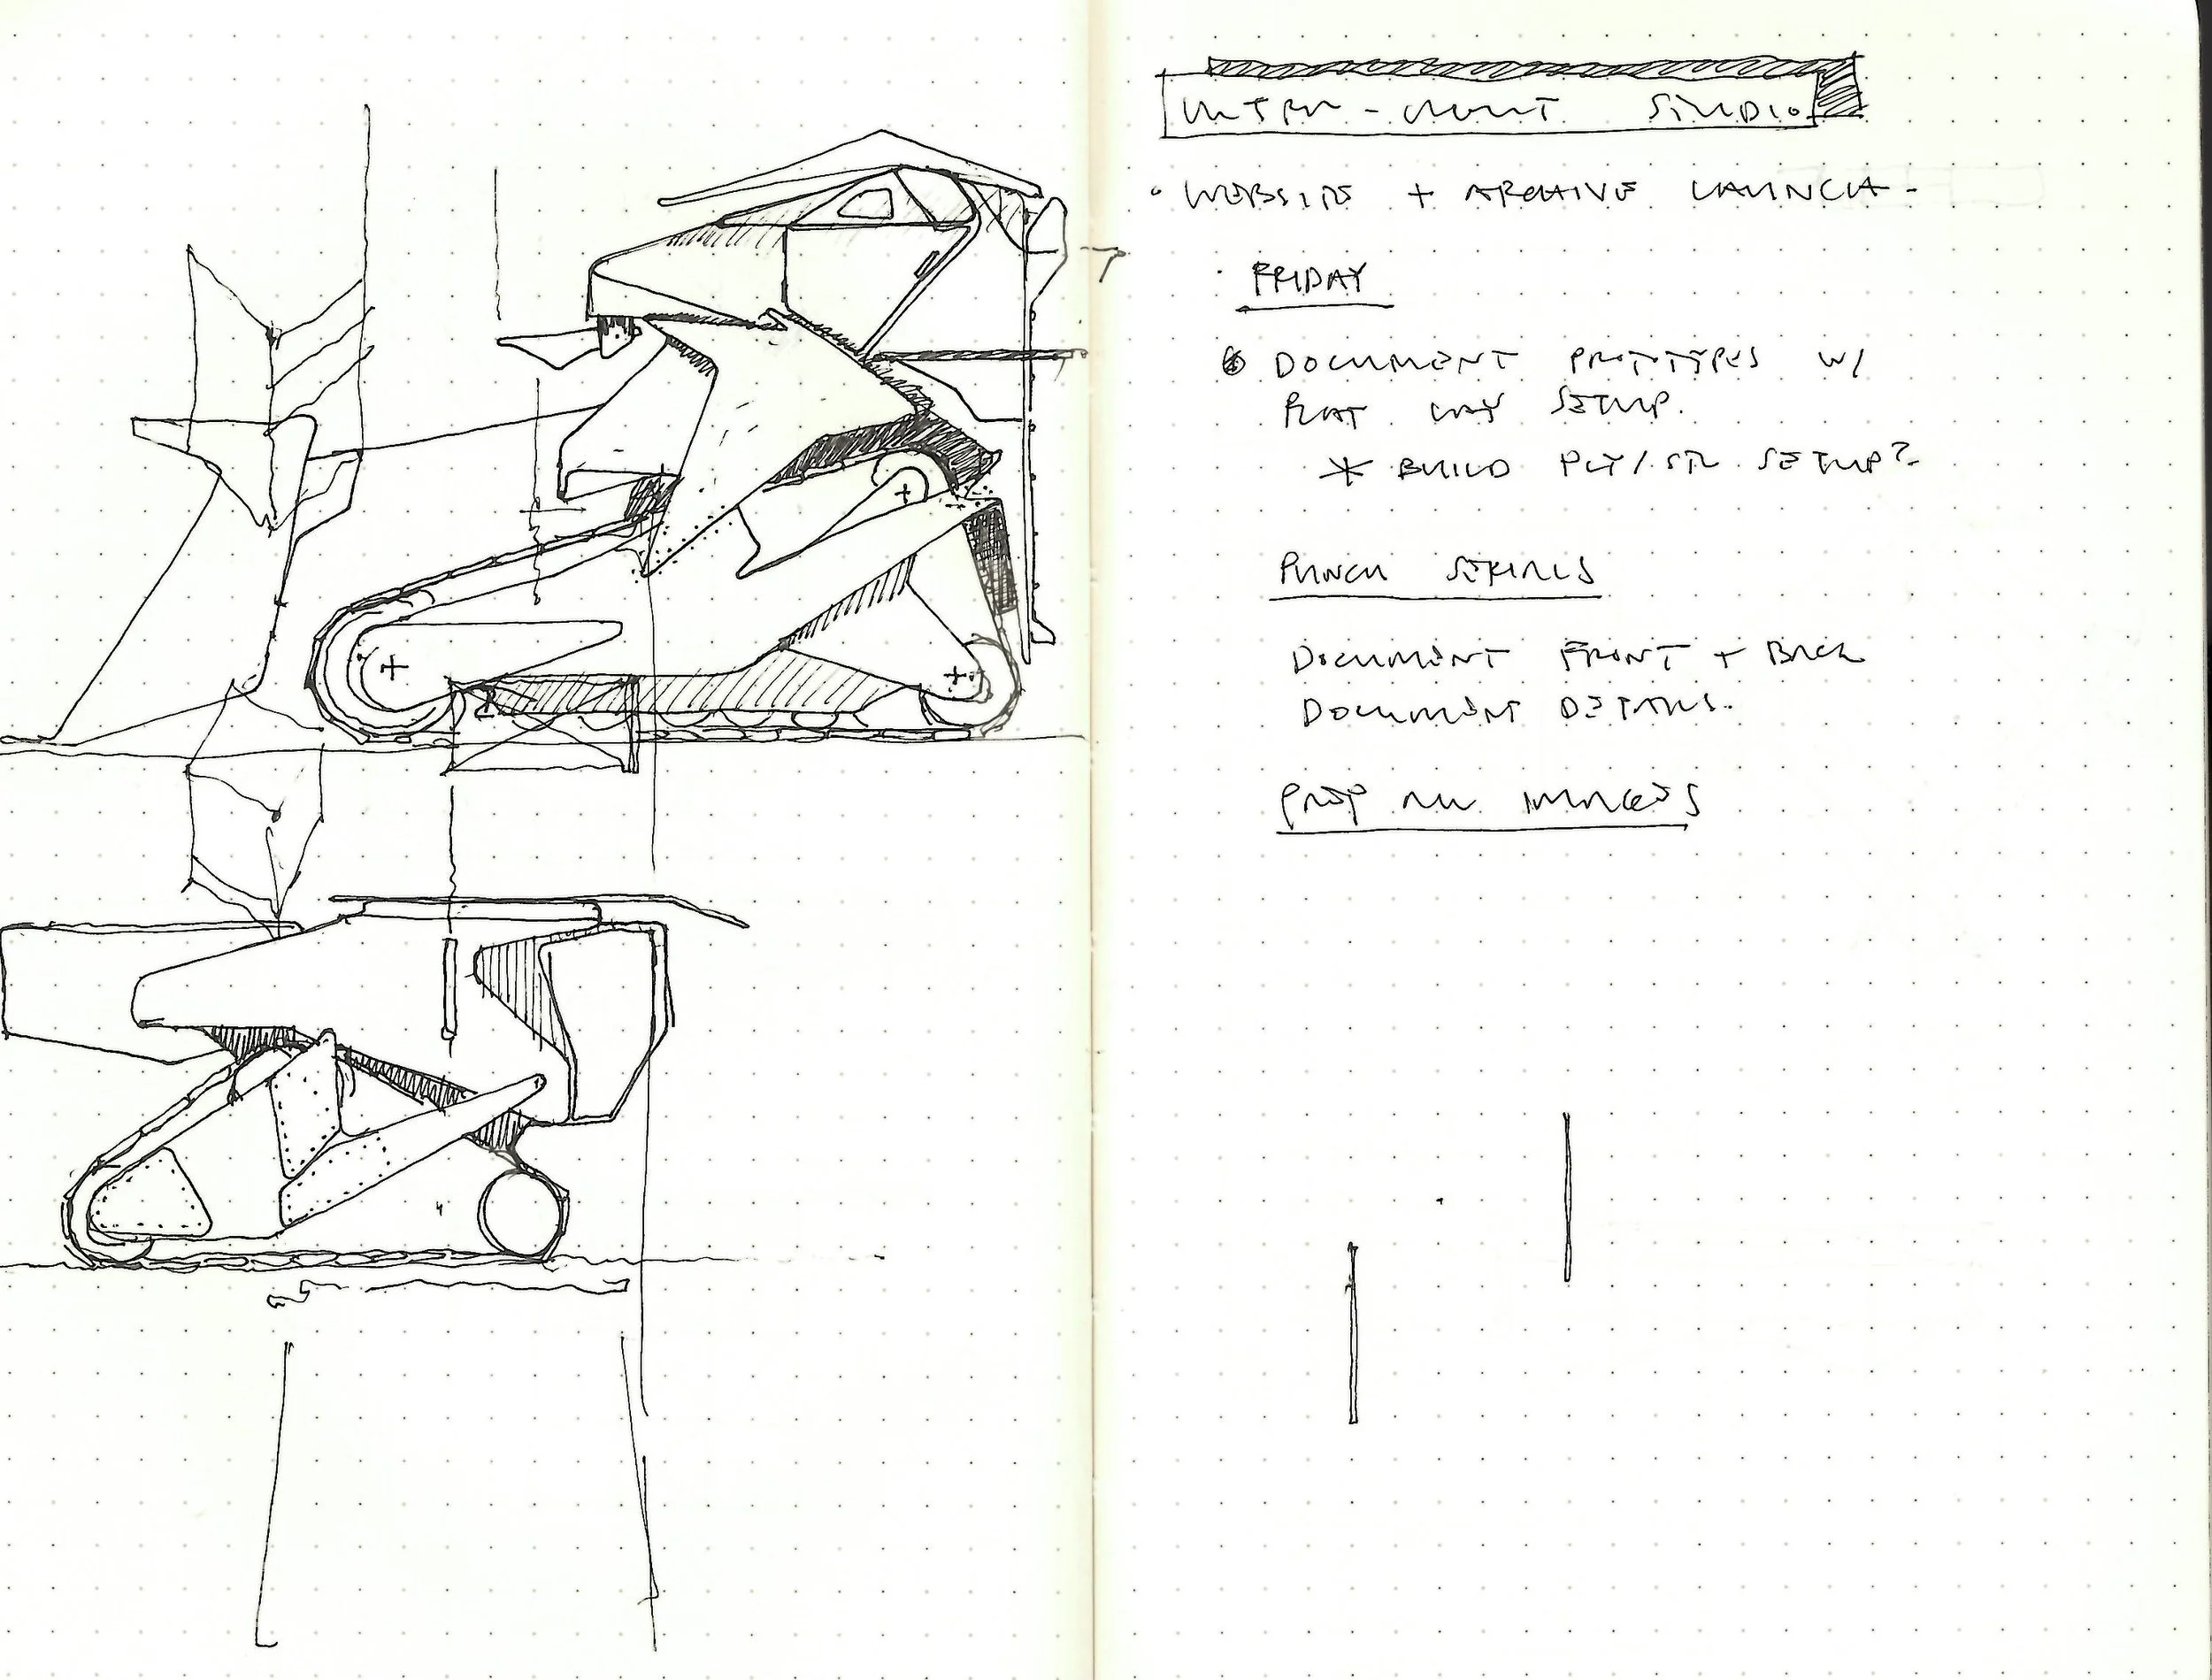 STUDIO
WEBSITE + ARCHIVE LAUNCH -
FRIDAY
DOCUMENT PROTOTYPES W/
FLAT LAY SETUP.
* BUILD PLY / STL SETUP?
PUNCH SERIALS
DOCUMENT FRONT + BACK
DOCUMENT DETAILS.
PREP ALL IMAGES